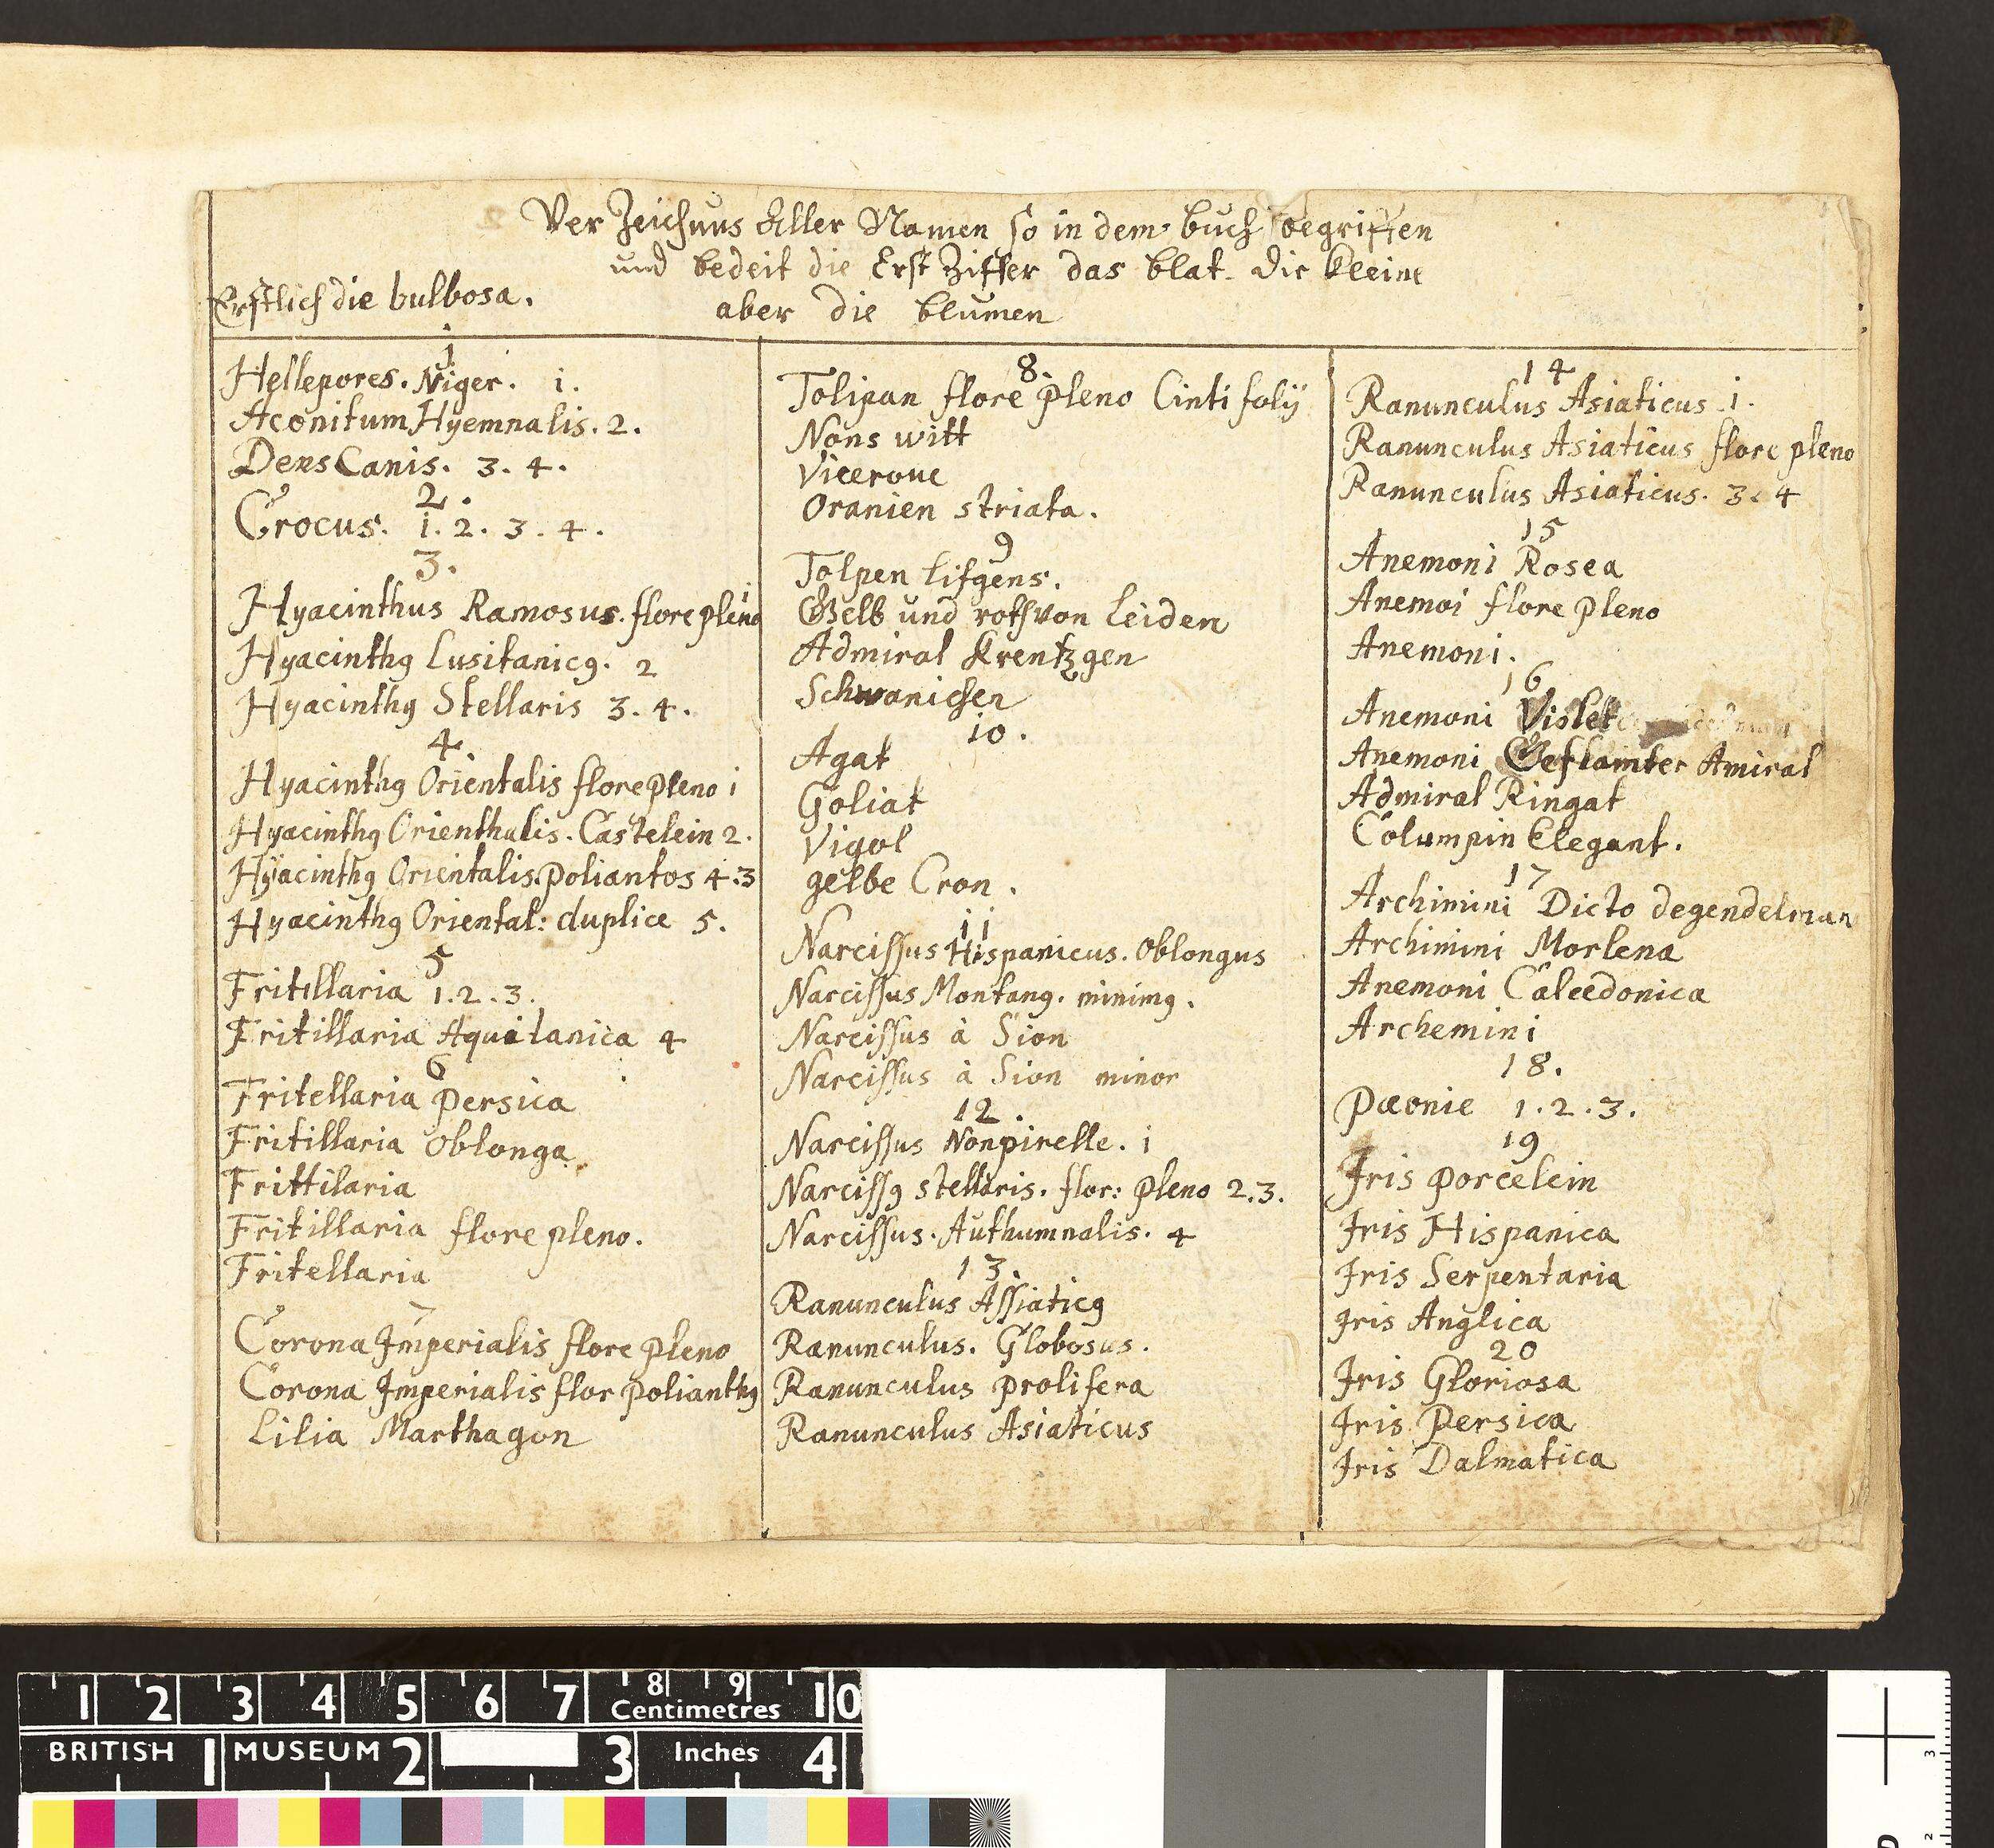 Ver Zeichnus Aller Namen so in dem buch begriffen
und bedeit die Erst Ziffer das blat. die kleine
aber die blumen
Erstlich die bulbosa.
1
Hellepores. Niger. i.
Aconitum Hyemnalis. 2.
Dens Canis. 3. 4.
2.
Crocus. i. 2. 3. 4.
3.
Hyacinthus Ramosus. flore pleno i
Hyacinthꝯ Lusitanicꝯ. 2
Hyacinthꝯ Stellaris 3. 4.
4.
Hyacinthꝯ Orientalis flore pleno i
Hyacinthꝯ Orienthalis. Castelein 2.
Hyacinthꝯ Orientalis. poliantos 4. 3
Hyacinthꝯ Oriental: duplice 5.
5
Fritillaria 1. 2. 3.
Fritillaria Aquitanica 4
6
Fritellaria persica
Fritillaria oblonga.
Frittilaria
Fritillaria flore pleno.
Fritellaria
7
Corona Imperialis flore pleno
Corona Imperialis flor polianthꝯ
Lilia Marthagon
8.
Tolipan flore pleno Cinti folij
Nons witt
Viceroue
Oranien striata.
9
Tolpen lifgens.
Gelb und roth von Leiden
Admiral Krentzgen
Schwanichen
10.
Agat
Goliat
Vigol
gelbe Cron.
11
Narcissus Hispanicus. oblongus
Narcissus Montanꝯ. minimꝯ.
Narcissus à Sion
Narcissus à Sion minor
12.
Narcissus Nonpirelle. i
Narcissꝯ stellaris. flor: pleno 2. 3.
Narcissus. Authumnalis. 4
13.
Ranunculus Assiaticꝯ
Ranunculus. Globosus.
Ranunculus prolifera
Ranunculus Asiaticus
14
Ranunculus Asiaticus. i.
Ranunculus Asiaticus flore pleno
Ranunculus Asiaticus. 3. 4
15
Anemoni Rosea
Anemoi flore pleno
Anemoni.
16
Anemoni Violet
Anemoni Geflamter Amiral
Admiral Ringat
Columpin Elegant.
17
Archimini Dicto degendelman
Archimini Morlena
Anemoni Calcedonica
Archemini
18.
Pæonie 1. 2. 3.
19
Iris porcelein
Iris Hispanica
Iris Serpentaria
Iris Anglica
20
Iris Gloriosa
Iris Persica
Iris Dalmatica
1 2 3 4 5 6 7 8 9 10
Centimetres
BRITISH 1 MUSEUM 2 3 Inches 4